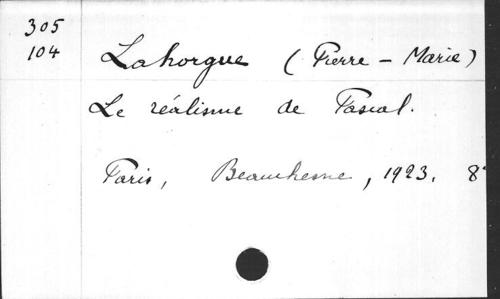 305
104
Lahorgue (Pierre - Marie)
Le réalisme de Pascal.
Paris, Beauchesne, 1923. 8°